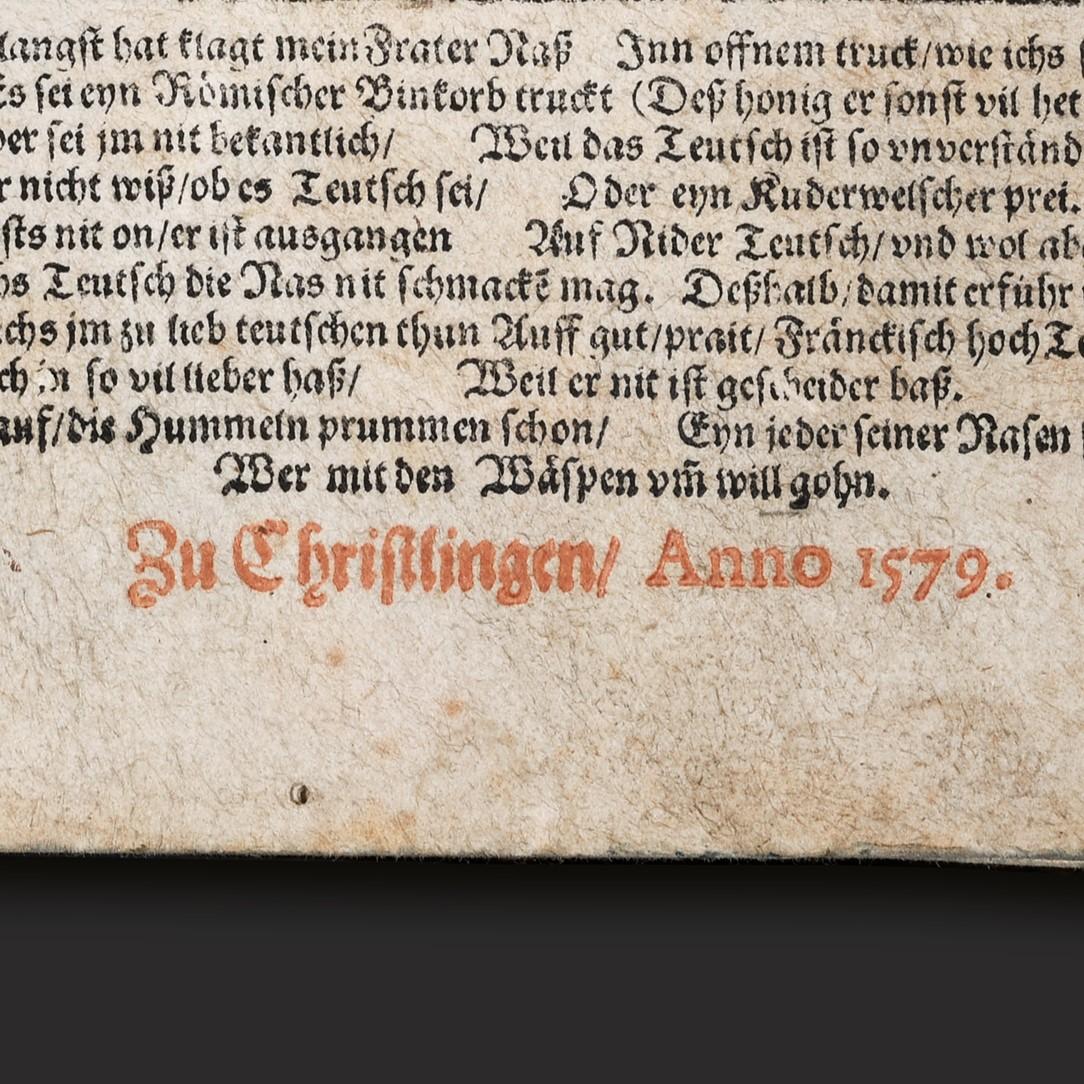 langst hat klagt mein Frater Naß Jnn offnem truck/wie ichs
sei eyn Römischer Binkorb truckt (Deß honig er sonst vil het
sei jm nit bekantlich/ Weil das Teutsch ist so vnverständ
nicht wiß/ob es Teutsch sei/ Oder eyn Kuderwelscher prei.
nit on/er ist ausgangen Auf Nider Teutsch/vnd wol ab
Teutsch die Nas nit schmackē mag. Deßhalb/damit erführ
jm zu lieb teutschen thun Auff gut/prait/Fränckisch hoch
so vil lieber haß/ Weil er nit ist gescheider baß.
auf/die Hummeln prummen schon/ Eyn jeder seiner Nasen
Wer mit den Wäspen vm̄ will gohn.
Zu Christlingen/ Anno 1579.